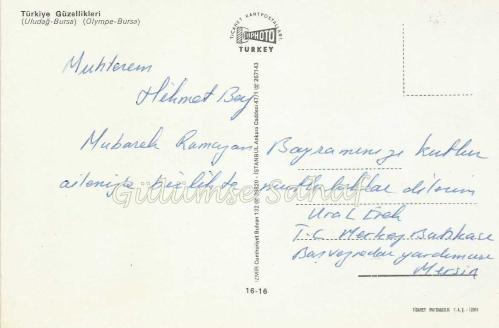 Türkiye Güzellikleri
(Uludağ-Bursa) (Olympe-Bursa)
TİCARET KARTPOSTALLARI
PHOTO
TURKEY
Muhterem
Hikmet Bey
Mubarek Ramazan Bayramınızı kutlar
ailenizle birlikte mutluluklar dilerim
Ural
T.C. Merkez Bankası
Başveznedar yardımcısı
Mersin
Gülümse Sahaf
İZMİR Cumhuriyet Bulvarı 132 İSTANBUL Ankara Caddesi 47/1 267143
16-16
TİCARET MATBAACILIK T.A.Ş. - İZMİR